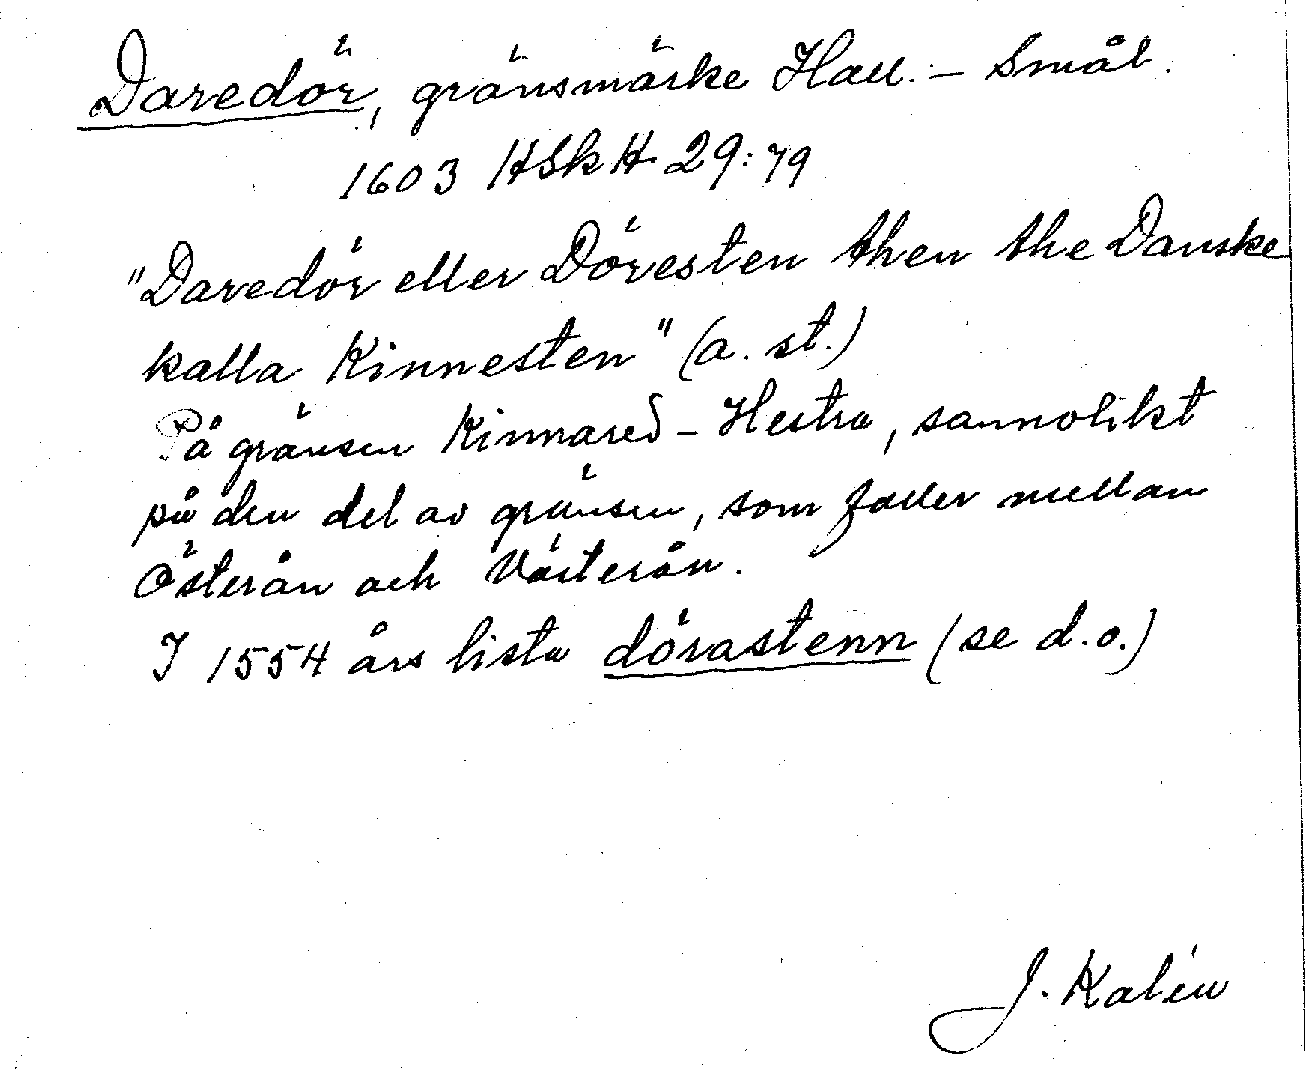 Daredör, gränsmärke Hall. – Smål.
1603 HSkH 29:79
"Daredör eller Döresten then the Danske
kalla Kinnesten" (a. st.)
På gränsen Kinnared – Hestra, sannolikt
på den del av gränsen, som faller mellan
Österån och Västerån.
I 1554 års lista dörastenn (se d.o.)
J. Kalén